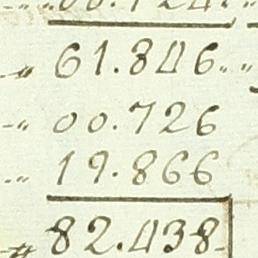 -„ 61.846. „
-„ 00.726
-„ 19.866
-„ 82.438.